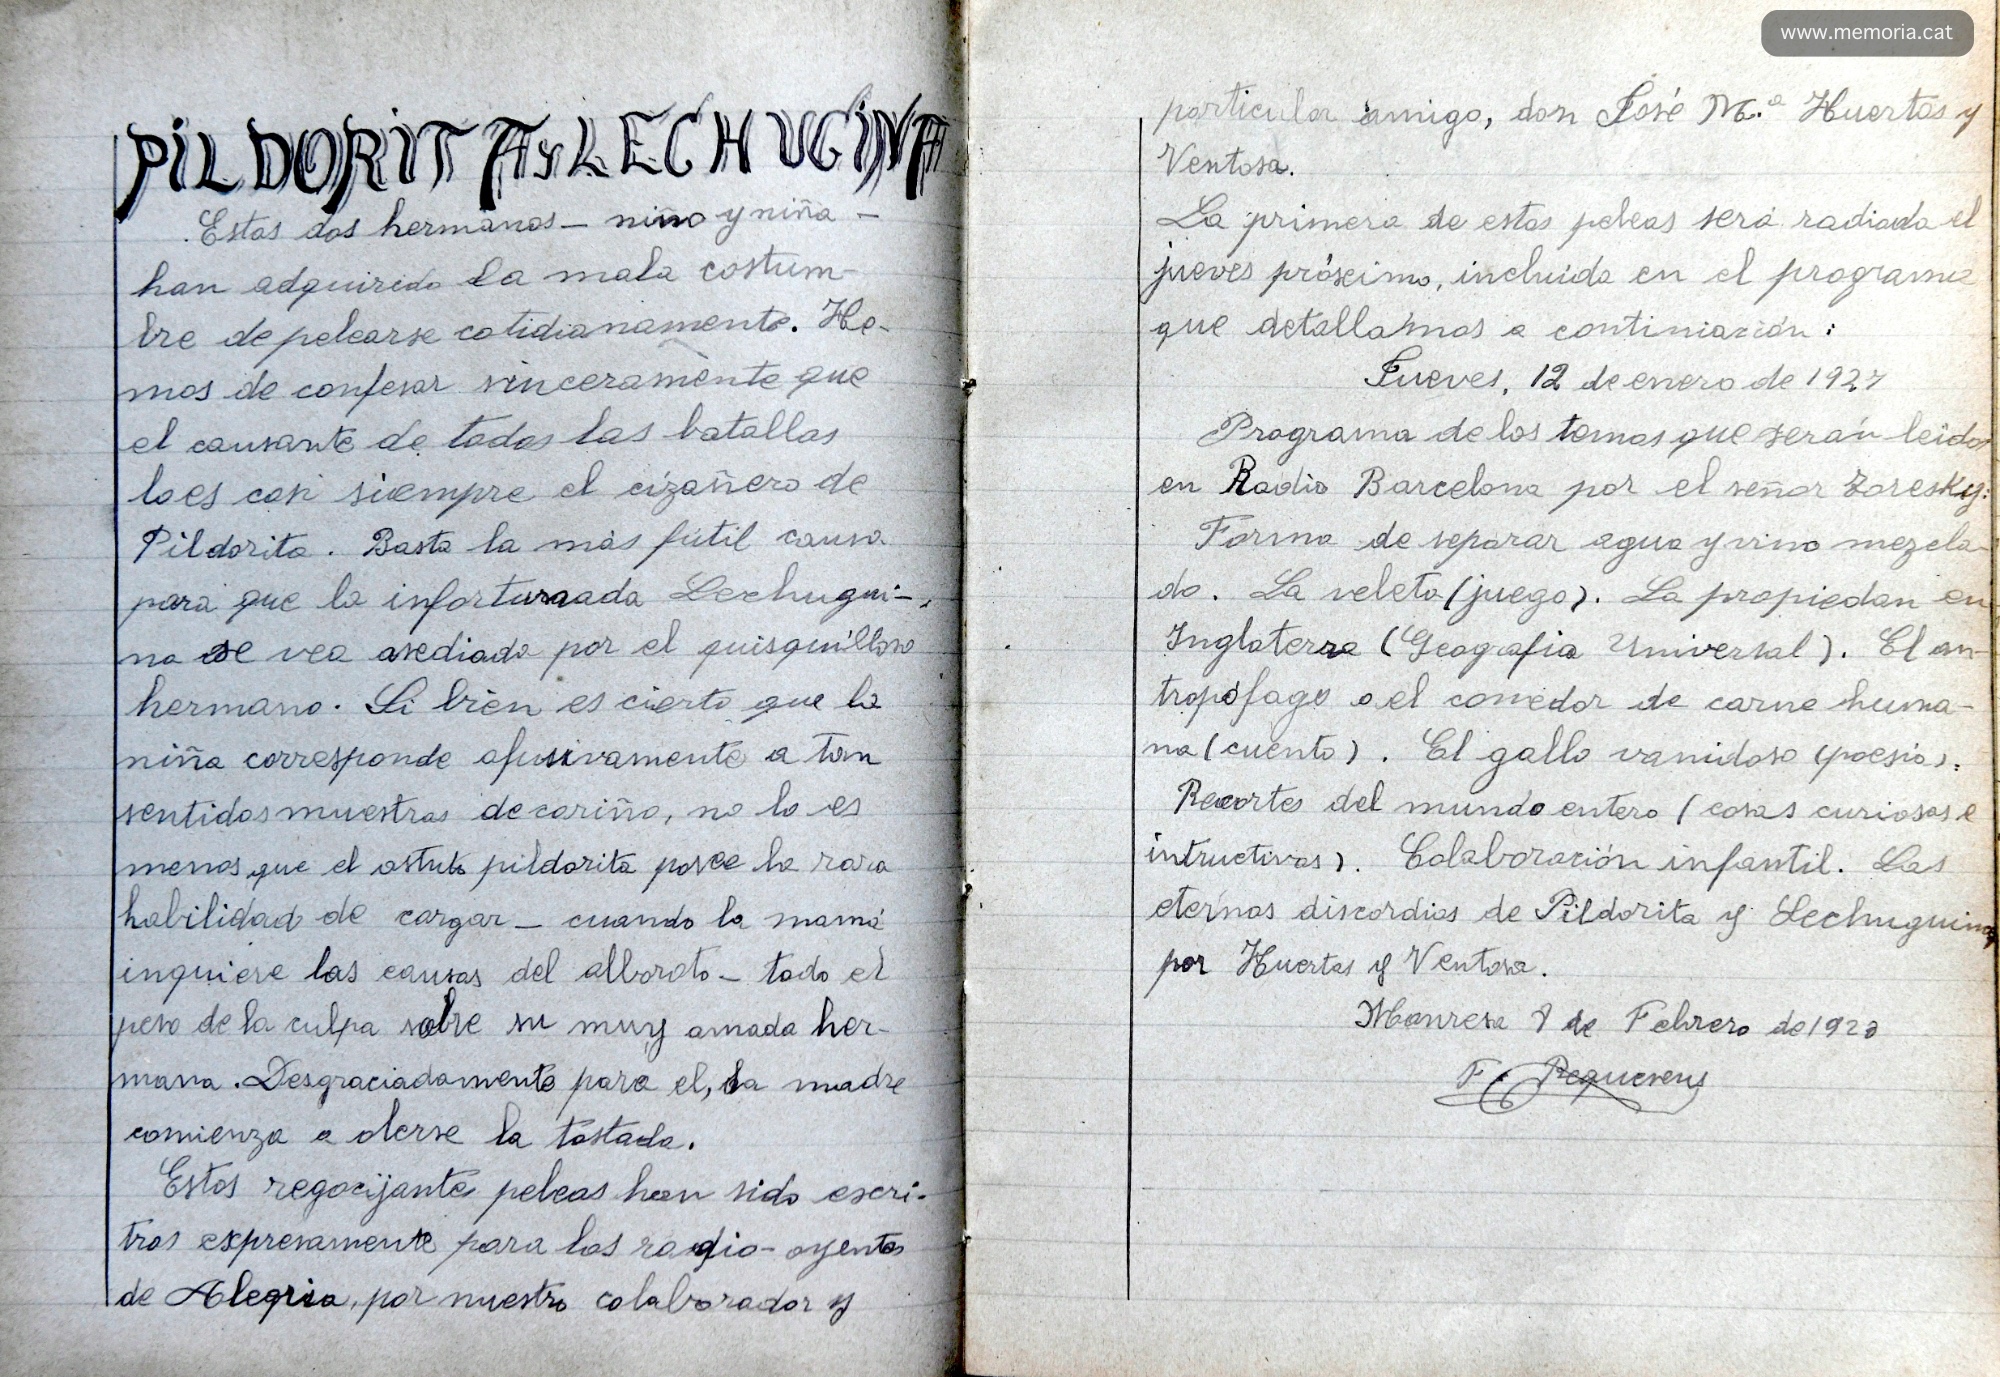 www.memoria.cat
PILDORITA y LECHUGINA
Estos dos hermanos — niño y niña —
han adquirido la mala costum-
bre de pelearse cotidianamente. He-
mos de confesar sinceramente que
el causante de todas las batallas
lo es casi siempre el cizañero de
Pildorita. Basta la más fútil causa
para que la infortunaada Lechugui-
na se vea asediada por el quisquilloso
hermano. Si bien es cierto que la
niña corresponde efusivamente a tan
sentidas muestras de cariño, no lo es
menos que el astuto pildorita posee la rara
habilidad de cargar — cuando la mamá
inquiere las causas del alboroto — todo el
peso de la culpa sobre su muy amada her-
mana. Desgraciadamente para el, la madre
comienza a olerse la tostada.
Estas regocijantes peleas han sido escri-
tras expresamente para los radio-oyentes
de Alegria, por nuestro colaborador y
particular amigo, don José M.ª Huertas y
Ventosa.
La primera de estas peleas será radiada el
jueves próximo, incluida en el programa
que detallamos a continiación:
Jueves, 12 de enero de 1927
Programa de los temas que serán leidos
en Radio Barcelona por el señor Toresky:
Forma de separar agua y vino mezcla-
do. La veleta (juego). La propiedan en
Inglaterra (Geografia Universal). El an-
tropófago o el comedor de carne huma-
na (cuento). El gallo vanidoso (poesia).
Recortes del mundo entero (cosas curiosas e
intructivas). Colaboración infantil. Las
eternas discordias de Pildorita y Lechuguina
por Huertas y Ventosa.
Manresa 8 de Febrero de
F. Pequerens